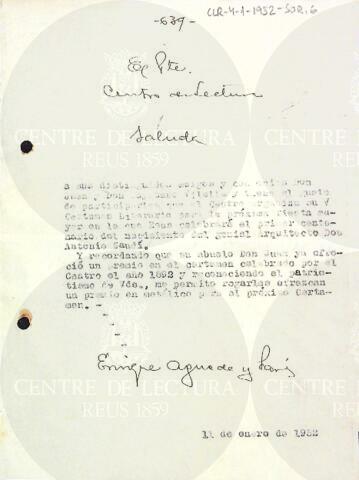 -639-
CLR-4-1-1952-SOR.6
Ex Pte.
Centro de Lectura
Saluda
CENTRE DE LECTURA
REUS 1859
a sus distinguidos amigos y consocios Don
Juan y Don Vilella y tiene el gusto
de participarles que el Centro organiza su V
Certamen Literario para la próxima fiesta ma-
yor en la que Reus celebrará el primer cente-
nario del nacimiento del genial Arquitecto Don
Antonio Gaudí.
Y recordando que su abuelo Don Juan ya ofre-
ció un premio en el certamen celebrado por el
Centro el año 1892 y reconociendo el patrio-
tismo de Vds., me permito rogarles ofrezcan
un premio en metálico para el próximo Certa-
men.
Enrique Aguadé y
CENTRE DE LECTURA
REUS 1859
11 de enero de 1952